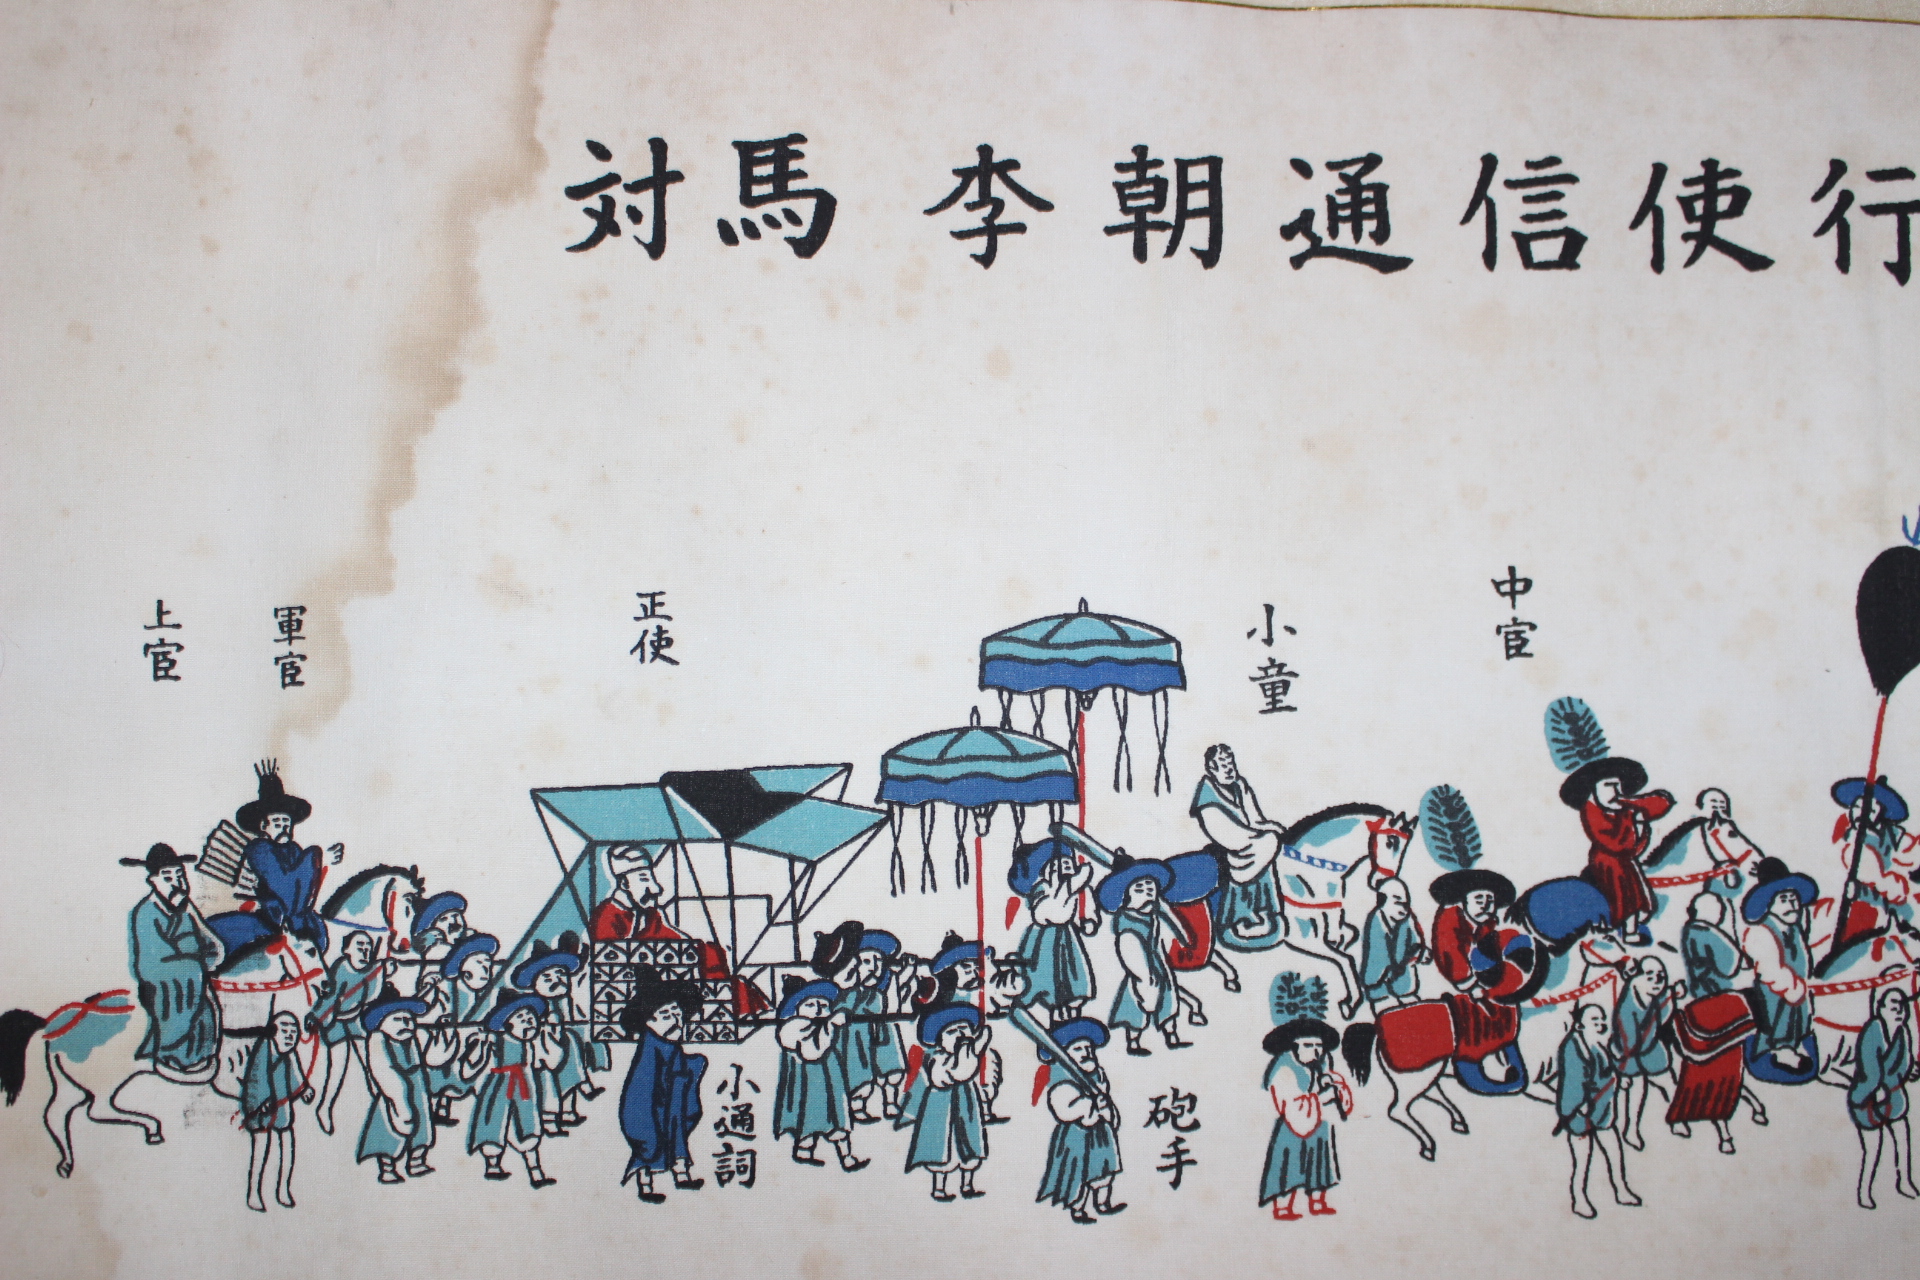 対馬 李朝通信使行
上宦
軍宦
正使
小童
中宦
小通詞
砲手